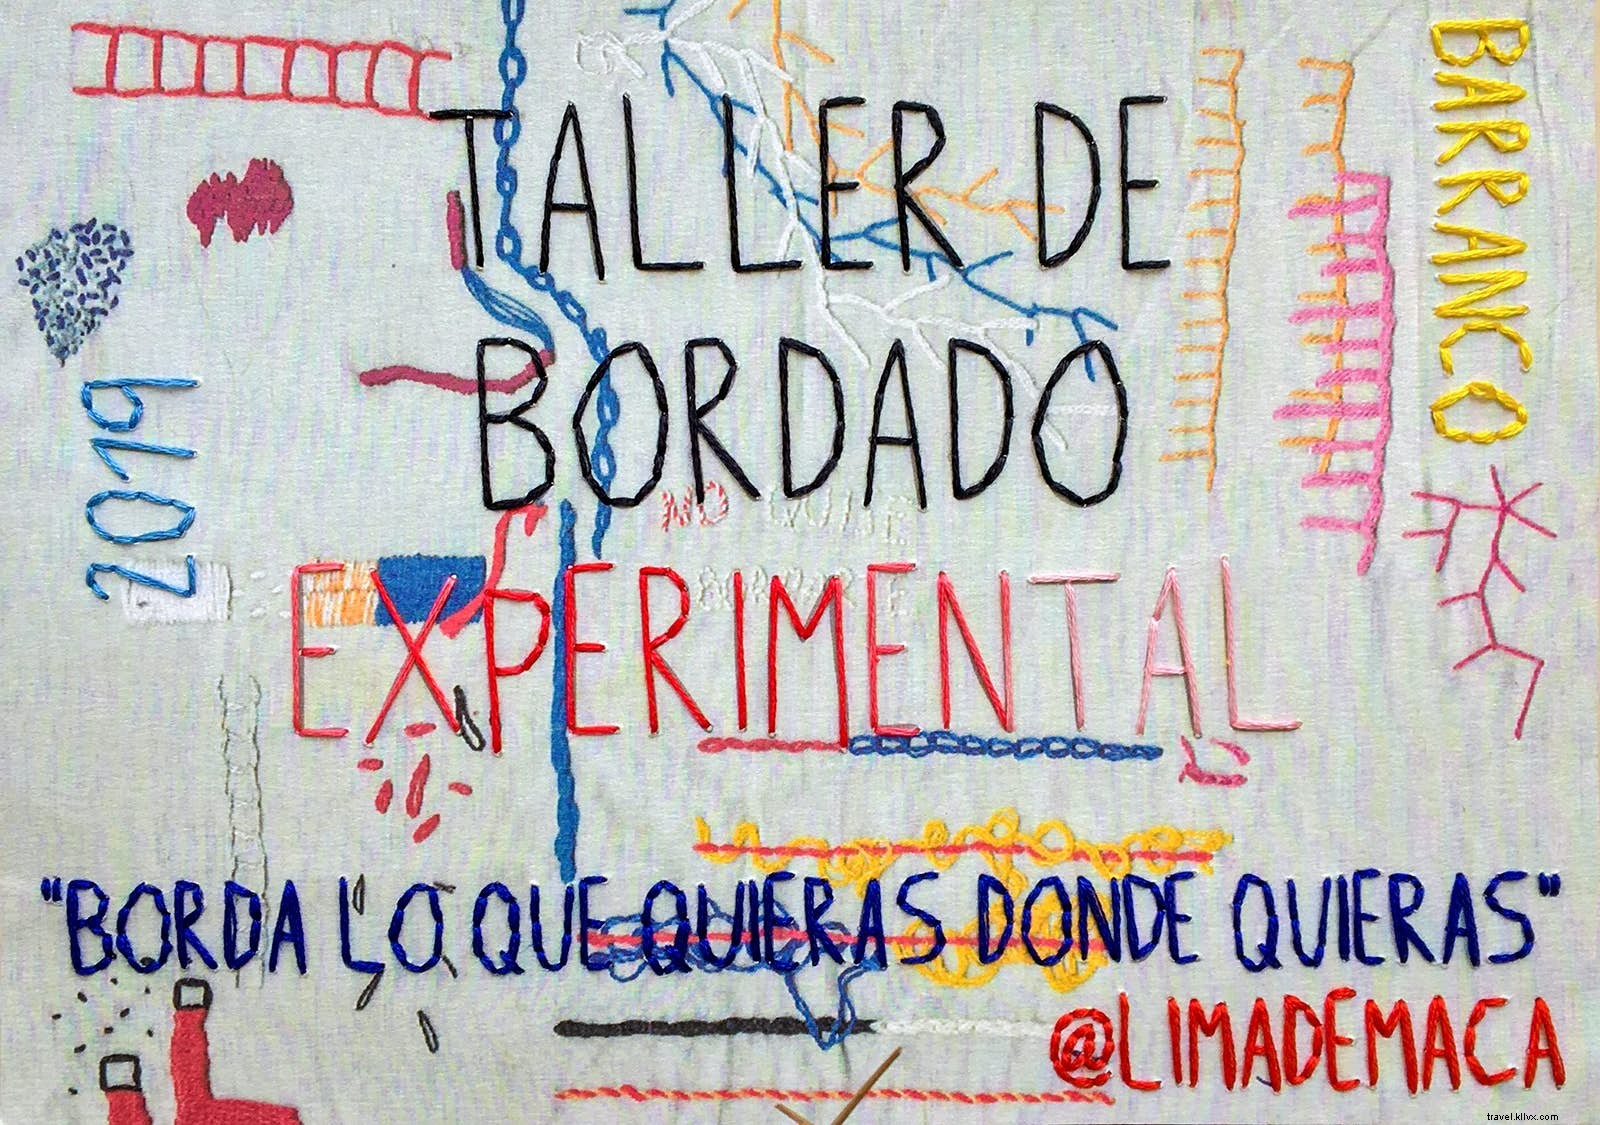 TALLER DE
BORDADO
EXPERIMENTAL
"BORDA LO QUE QUIERAS DONDE QUIERAS"
@LIMADEMACA
BARRANCO
2019
NO QUISE
BORRARTE
travel.kllvx.com